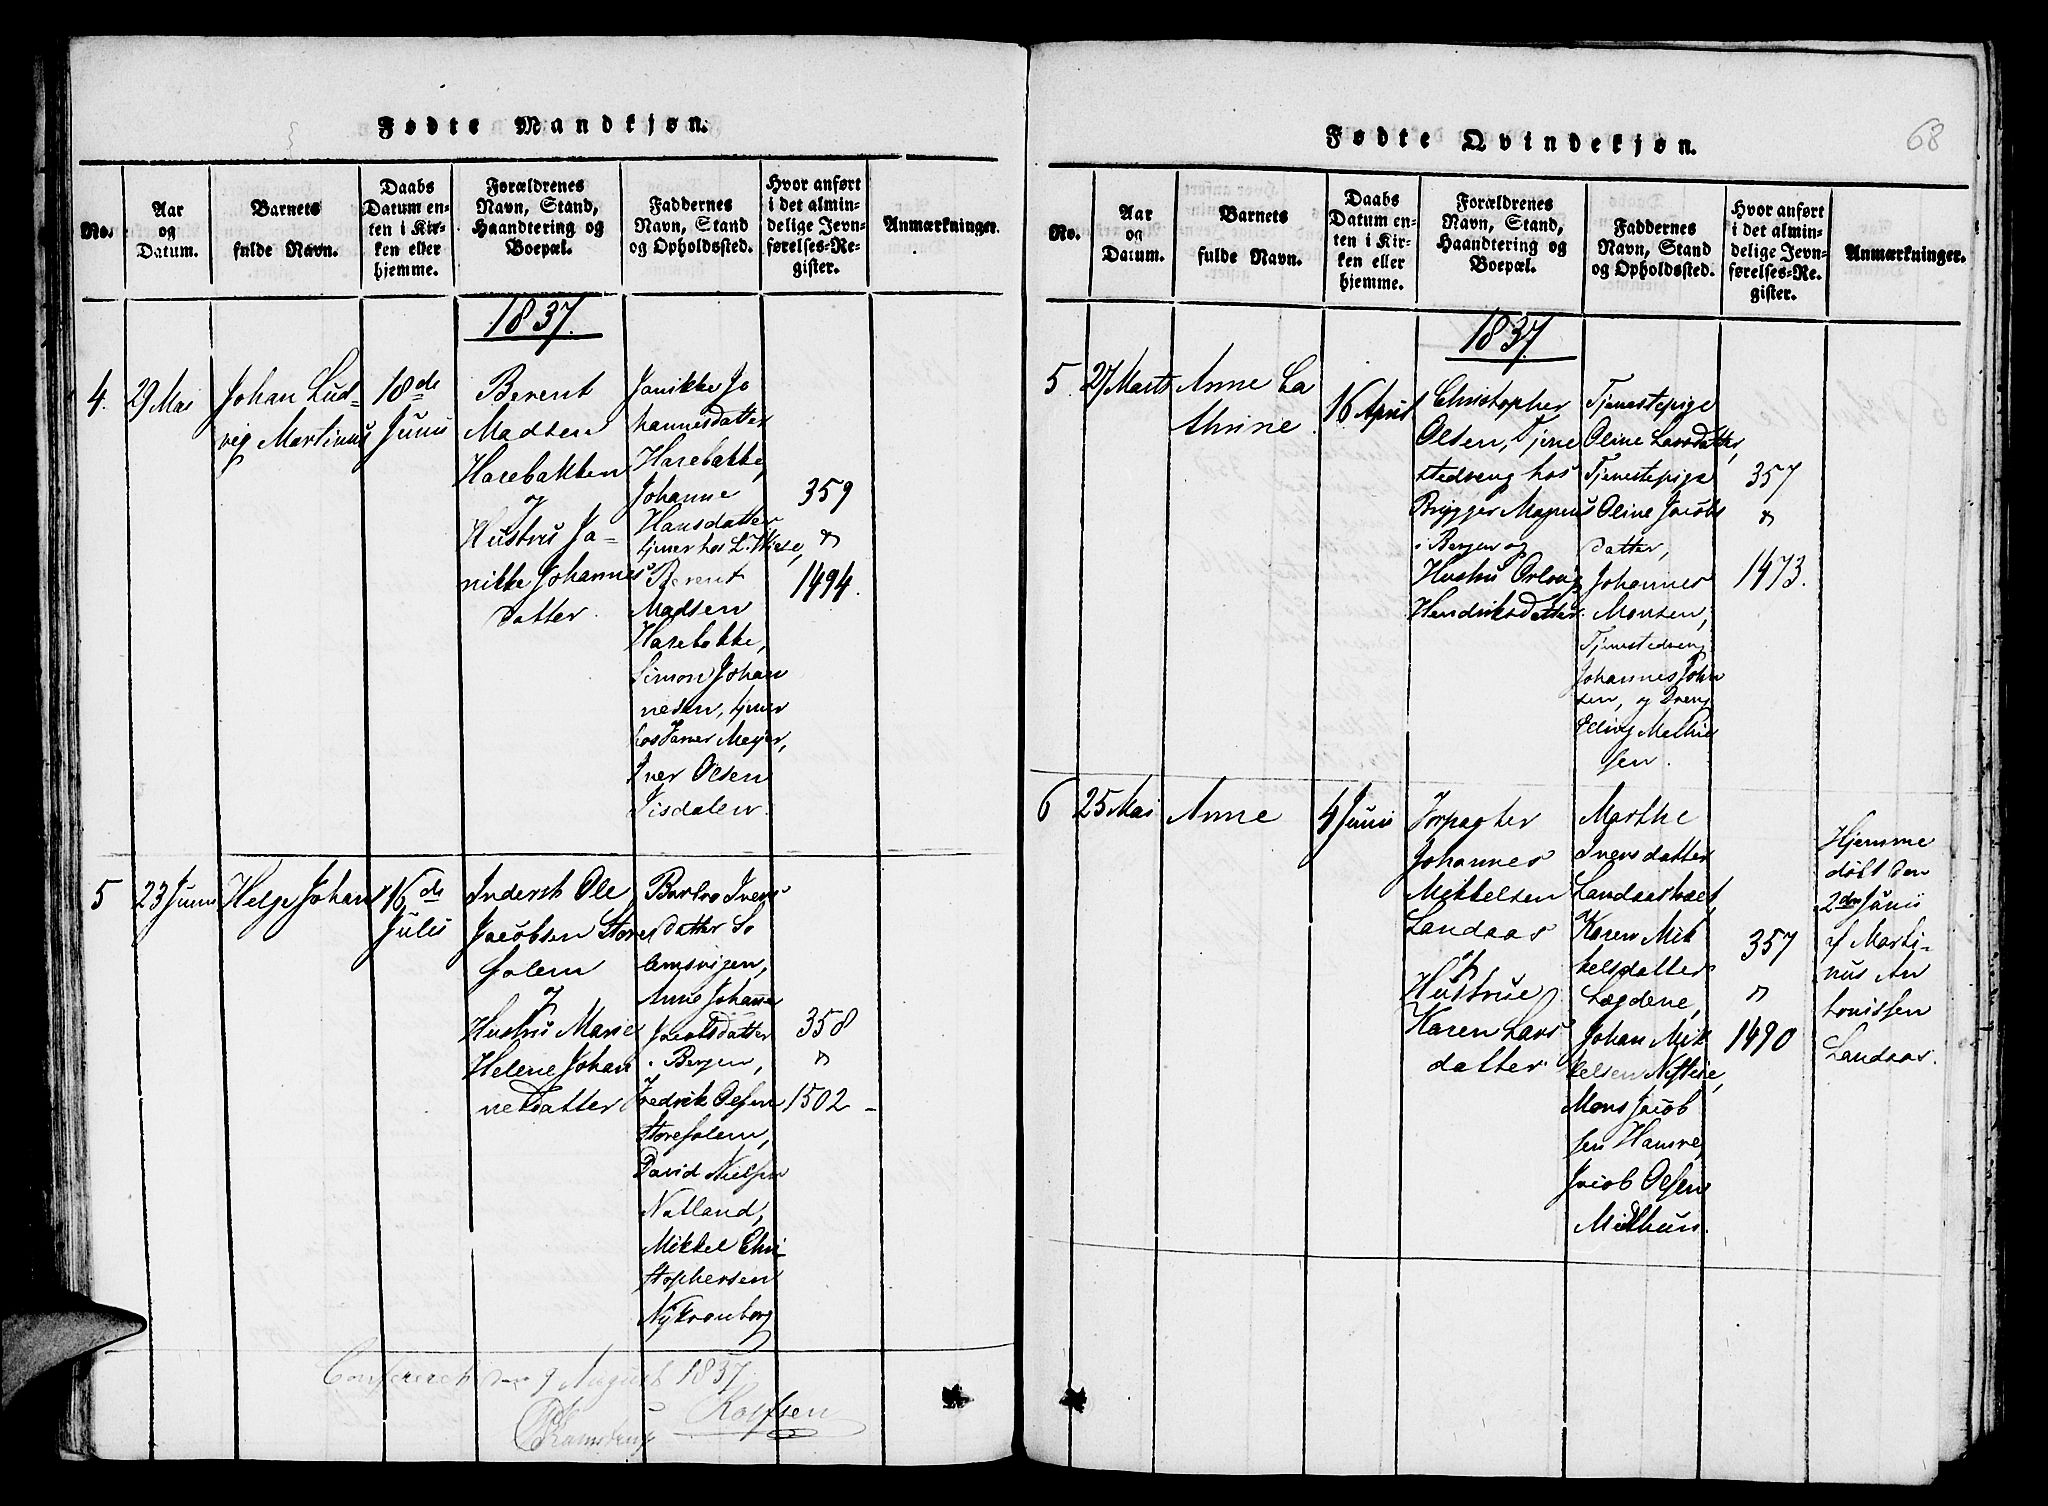 Fødte Mandkjøn.
No.
Aar
og
Datum.
Barnets
fulde Navn.
Daabs
Datum en-
ten i Kir-
ken eller
hjemme.
Forældrenes
Navn, Stand,
Haandtering og
Boepæl.
Faddernes
Navn, Stand
og Opholdssted.
Hvor anført
i det almin-
delige Jevn-
førelses-Re-
gister.
Anmærkninger.
1837.
4.
29 Mai
Johan Lud-
vig Martinus
18de
Junii
Berent
Madsen
Harebakken
og
Hustru Ja-
nikke Johannes
datter.
Janikke Jo
hannesdatter
Harebakke,
Johanne
Hansdatter
tjener hos L. Wiese,
Berent
Madsen
Harebakke,
Simon Johan
nesen, tjener
hos Meyer,
Iver Olsen
Tisdalen.
359
&
1494.
5
23 Junii
Helge Johan
16de
Julii
Inderst Ole
Jacobsen Store
Solem
og
Hustru Marie
Helene Johan
nesdatter
Barbro Ivers
datter So
lemsvigen,
Anne Johanne
Jacobsdatter
i Bergen,
Fredrik Olsen
Storesolem,
David Nielsen
Natland,
Mikkel Chri-
stophersen
Nykronborg
358
&
1502 -
Confereret den 9 August 1837
Kamstrup
Rolfsen
Fødte Qvindekjøn.
68
No.
Aar
og
Datum.
Barnets
fulde Navn.
Daabs
Datum en-
ten i Kir-
ken eller
hjemme.
Forældrenes
Navn, Stand,
Haandtering og
Boepæl.
Faddernes
Navn, Stand
og Opholdssted.
Hvor anført
i det almin-
delige Jevn-
førelses-Re-
gister.
Anmærkninger.
1837.
5.
27 Marts
Anne Ca
thrine
16 April
Christopher
Olsen, Tjene
stedreng hos
Brygger Magnus
i Bergen og
Hustru
Hendriksdatter.
Tjenestepige
Oline Larsdatter,
Tjenestepige
Oline Jacobs
datter,
Johannes
Monsen,
Tjenestedreng
Johannes John
sen, og Dreng
Elling Mathie
sen.
357
&
1473.
6
25 Mai
Anne
4 Junii
Forpagter
Johannes
Mikkelsen
Landaas
&
Hustrue
Karen Lars
datter
Marthe
Iversdatter
Landaas
Karen Mik
kelsdatter
Lægdene,
Johan Mik
kelsen Nesttue,
Mons Jacob
sen Hamre,
Jacob Olsen
Midthun.
357
&
1490
Hjemme
døbt den
2den Junii
af Marti-
nus An
tonissen
Landaas.